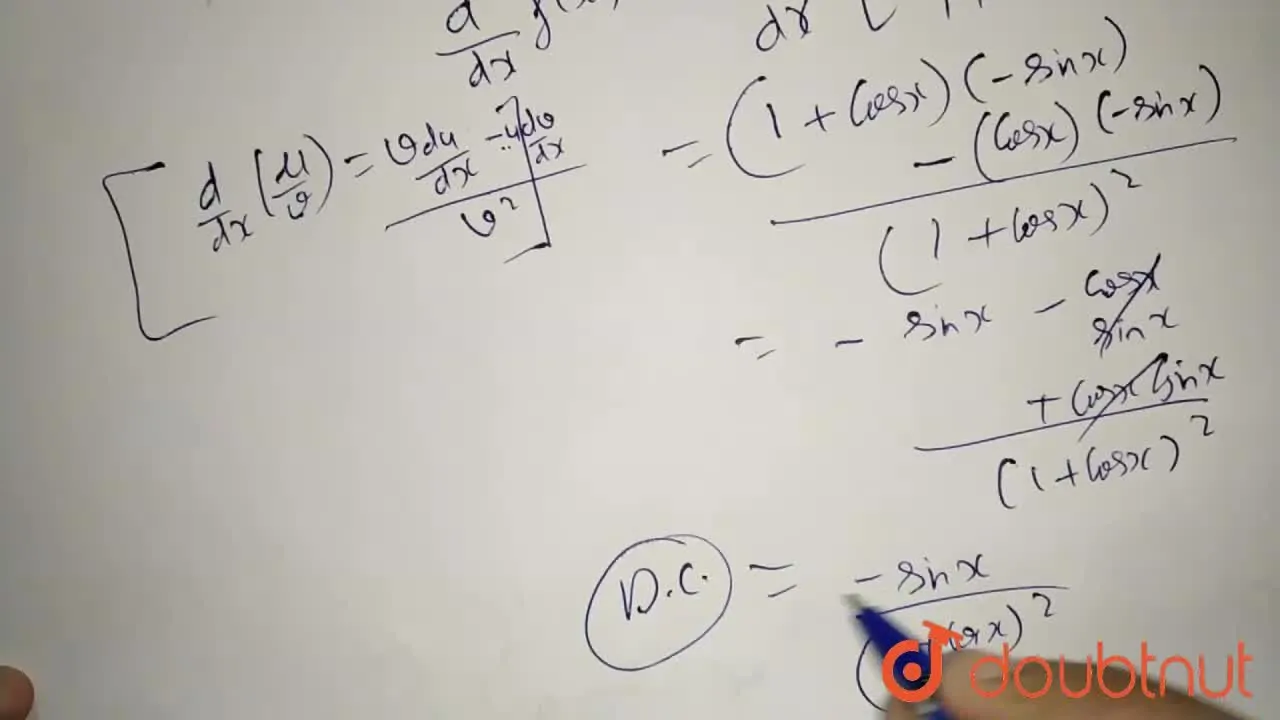 d/dx f(x)
d/dx [
[d/dx (u/v) = (v du/dx - u dv/dx) / v²]
= (1 + cosx) (-sinx)
- (cosx) (-sinx)
(1 + cosx)²
= - sinx - cosx
sinx
+ cosx sinx
(1 + cosx)²
D.C. = -sinx
+ cosx)²
doubtnut